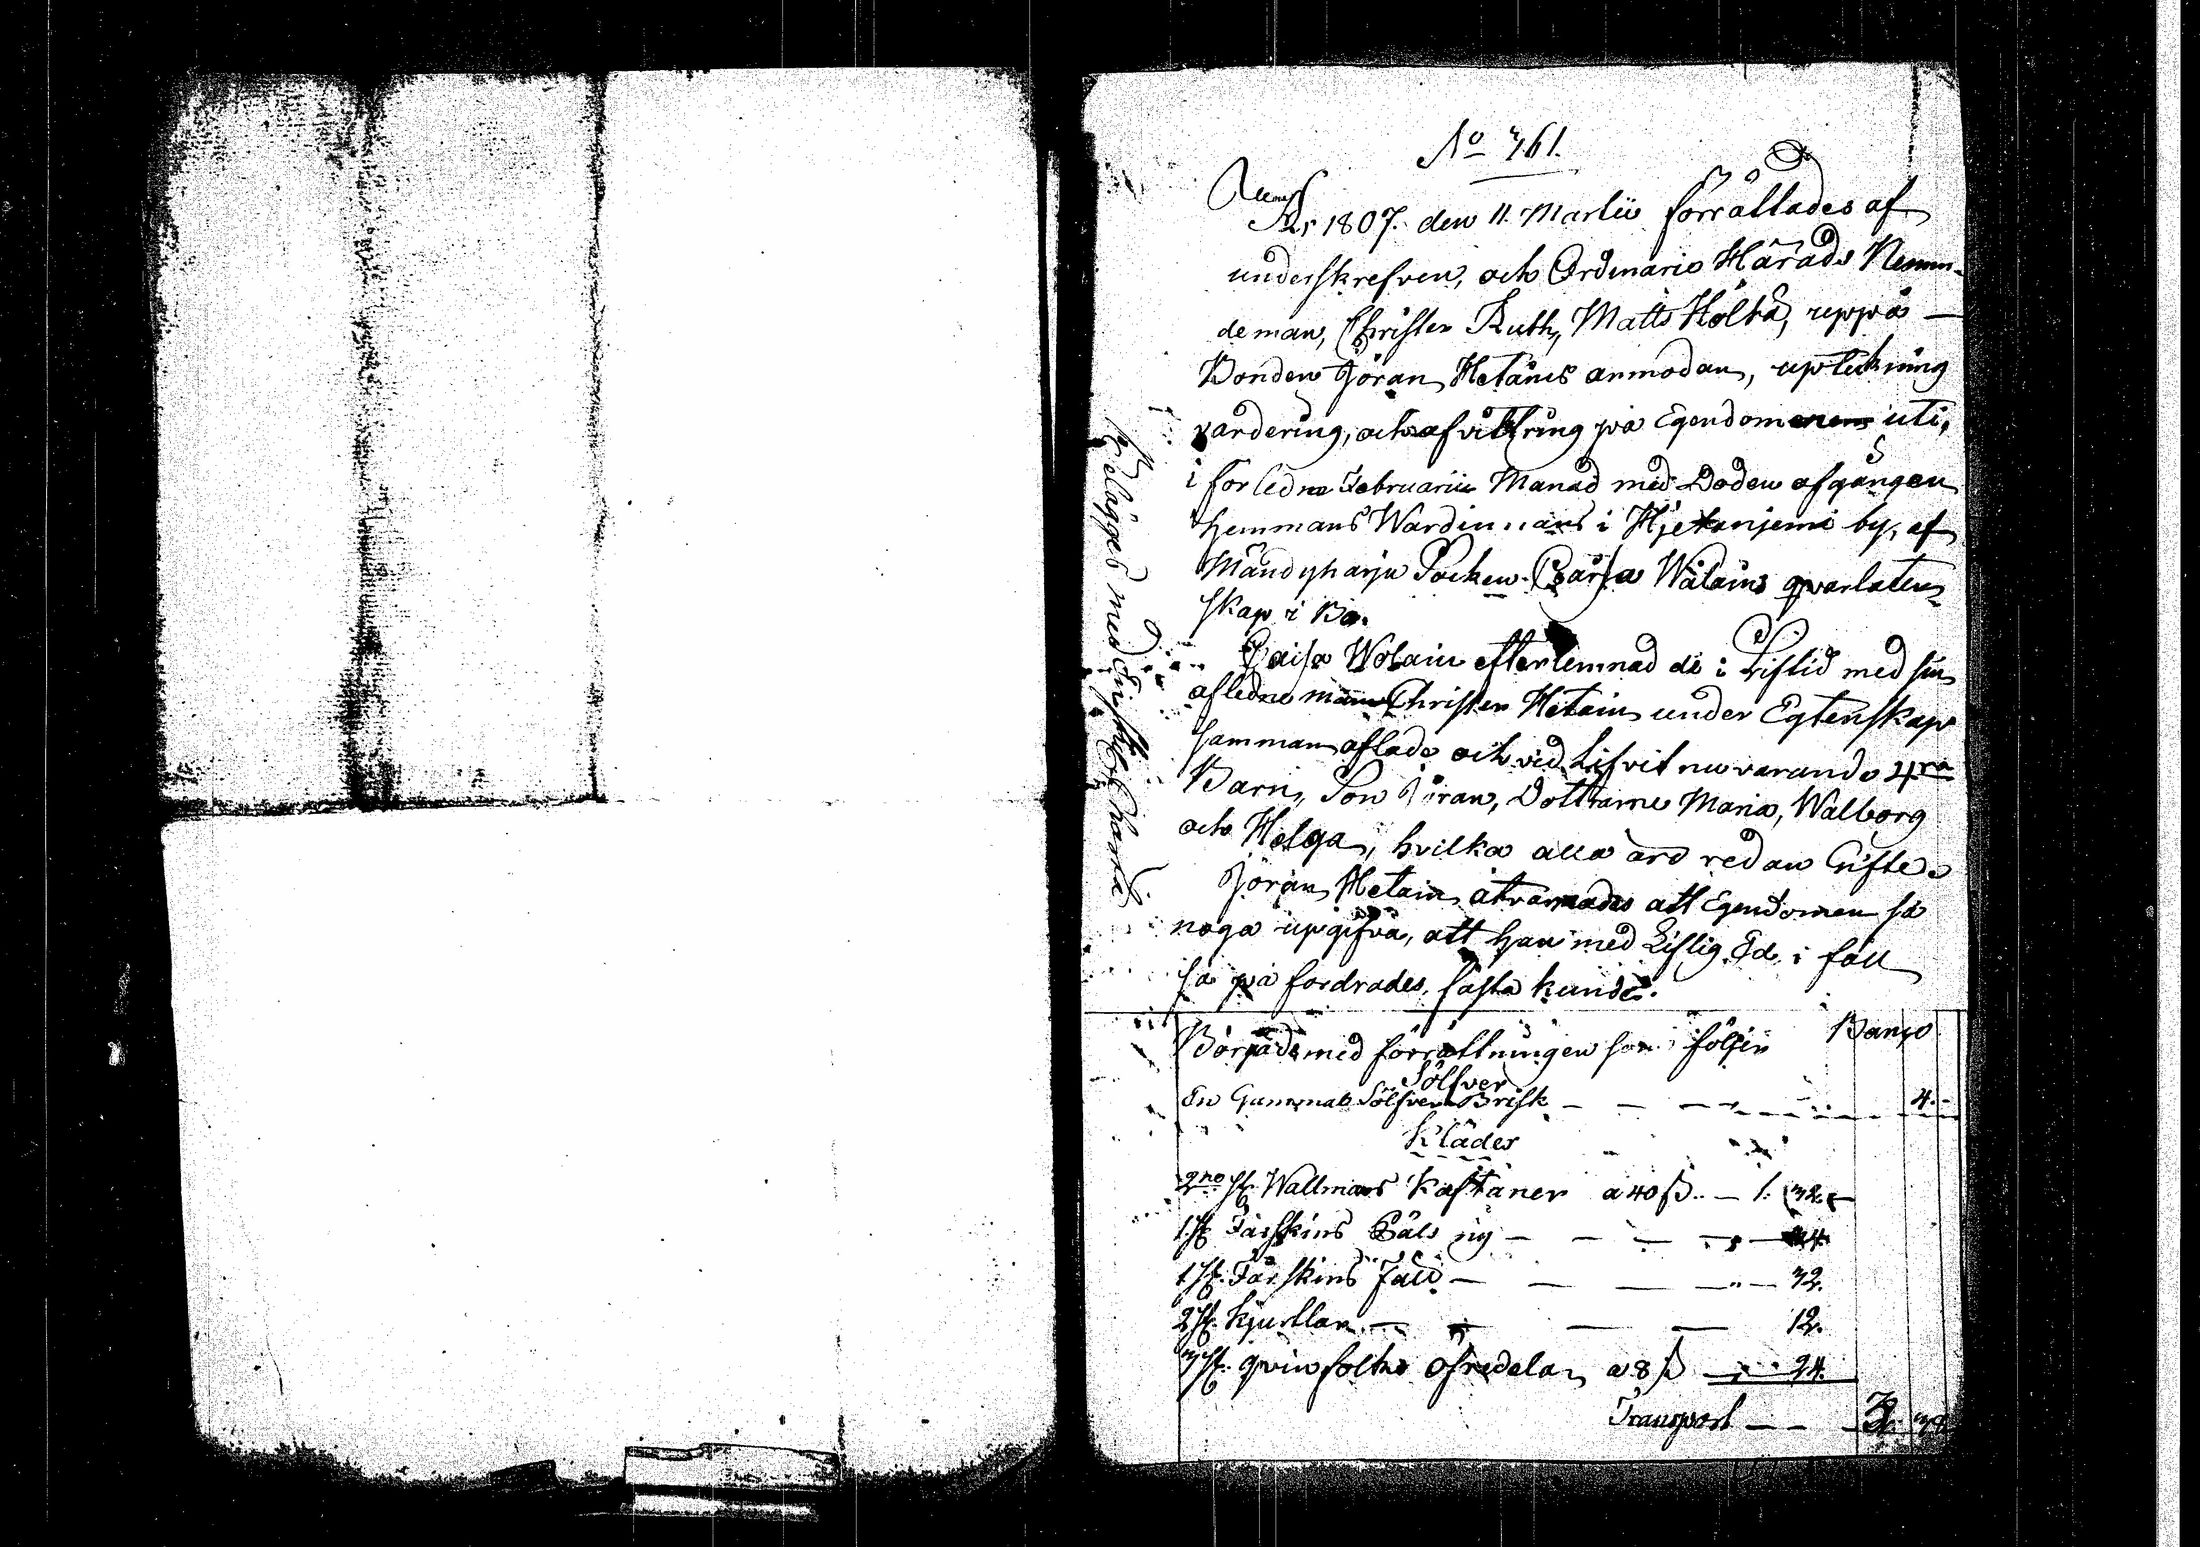 No 361.
År 1807. den 11 Martii förrättades af
underskrefven, och Ordinario Härads Nemn-
deman, Christer Ruth, Matts Höltä, uppå
Bonden Jöran Hetains anmodan, upteckning
värdering, och afvittring på Egendomen uti,
i förledne Februarii Månad med Döden afgången
hemmans Wärdinnans i Hjetaniemi by, af
Mändyharju Socken Caisa Wälains qvarlåten-
skap i Bo.
Caisa Wolain efterlemnad de i Liftid med sin
afledne man Christer Hetain under Egtenskap
samman aflade och vid Lifvet nuvarande 4ra
Barn, Son Jöran, Döttrarne Maria, Walborg
och Helga, hvilka alla äro redan Gifte.
Jöran Hetain åtvarnades att Egendomen så
noga upgifva, att han med Liflig Ed i fall
så på fordrades, fästa kunde.
Börjades med förrättningen som följer Banco
Sölfver
En Gammal Sölfver Brisk 4.
Kläder
2ne st. Wallmars Kaftaner a 40 ß 1. 32.
1 st. Fårskins Päls ny 24.
1 st. Fårskins Fäll 32.
2 st. Kjortlar 12.
3 st. qvinfolks Öfredelar a 8 ß 24.
Transport 3.
Belägges med En skill. Charta